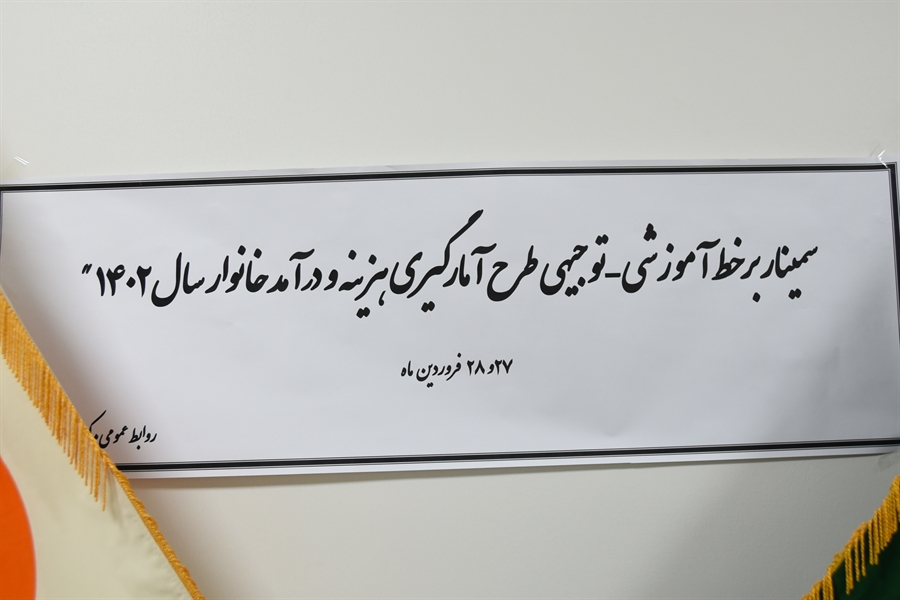 سمینار بر خط آموزشی-توجیهی طرح آمارگیری هزینه و درآمد خانوار سال ۱۴۰۲"
۲۷و ۲۸ فروردین ماه
روابط عمومی